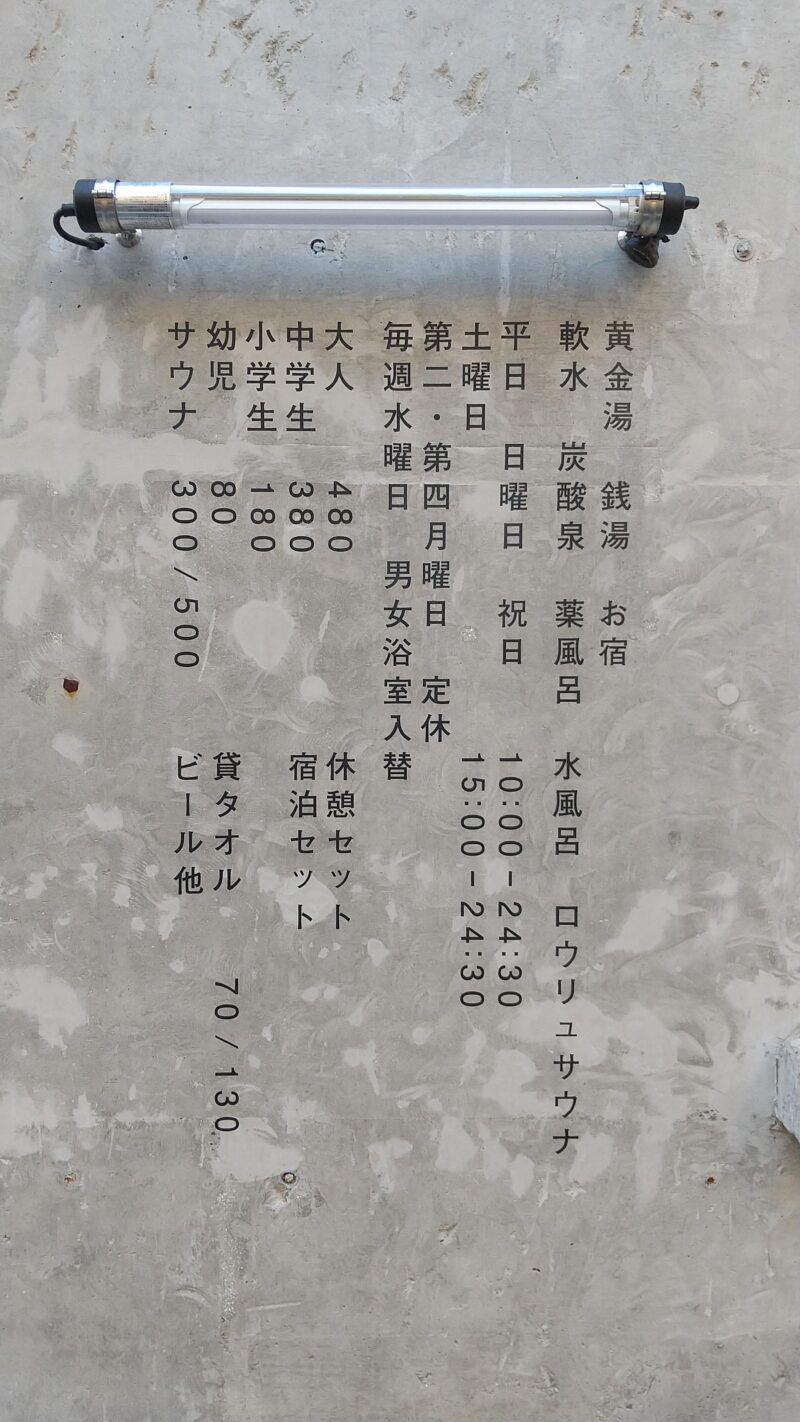 黄金湯 銭湯 お宿
軟水 炭酸泉 薬風呂 水風呂 ロウリュサウナ
平日 日曜日 祝日 10:00-24:30
土曜日 15:00-24:30
第二・第四月曜日 定休
毎週水曜日 男女浴室入替
大人 480 休憩セット
中学生 380 宿泊セット
小学生 180
幼児 80 貸タオル 70/130
サウナ 300/500 ビール他